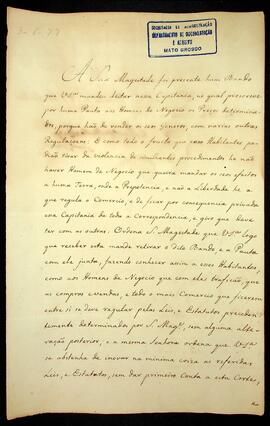 SECRETARIA DE ADMINISTRAÇÃO
DEPARTAMENTO DE DOCUMENTAÇÃO
E ARQUIVO
MATO GROSSO
A Sua Magestade foi presente hum Bando
que V.S.ª mandou deitar nessa Capitania, no qual prescreveo
por huma Pauta aos Homens de Negocio os Preços determina-
dos, porque hão de vender os seus generos, com varias outras
Regulaçoens: E como todo o fructo que esses Habitantes po-
dião tirar da violencia de similhantes procedimentos he não
haver Homem de Negocio que queira mandar os seus effeitos
a huma Terra, onde a Prepotencia, e não a Liberdade he a
que regula o Comercio, e de ficar por consequencia privada
essa Capitania de toda a Correspondencia, e giro que deve
ter com as outras: Ordena S. Magestade que V.S.ª logo
que receber esta mande retirar o dito Bando e a Pauta
com elle junta, fazendo conhecer assim a esses Habitantes,
como aos Homens de Negocio que com elles traficão, que
as compras e vendas, e todo o mais Comercio que fizerem
entre si se deve regular pelas Leis, e Estatutos preceden-
temente determinados por S. Mag.e, sem alguma alte-
ração posterior, e a mesma Senhora ordena que V.S.ª
se abstenha de inovar na minima coiza as referidas
Leis, e Estatutos, sem dar primeiro Conta a esta Corte,